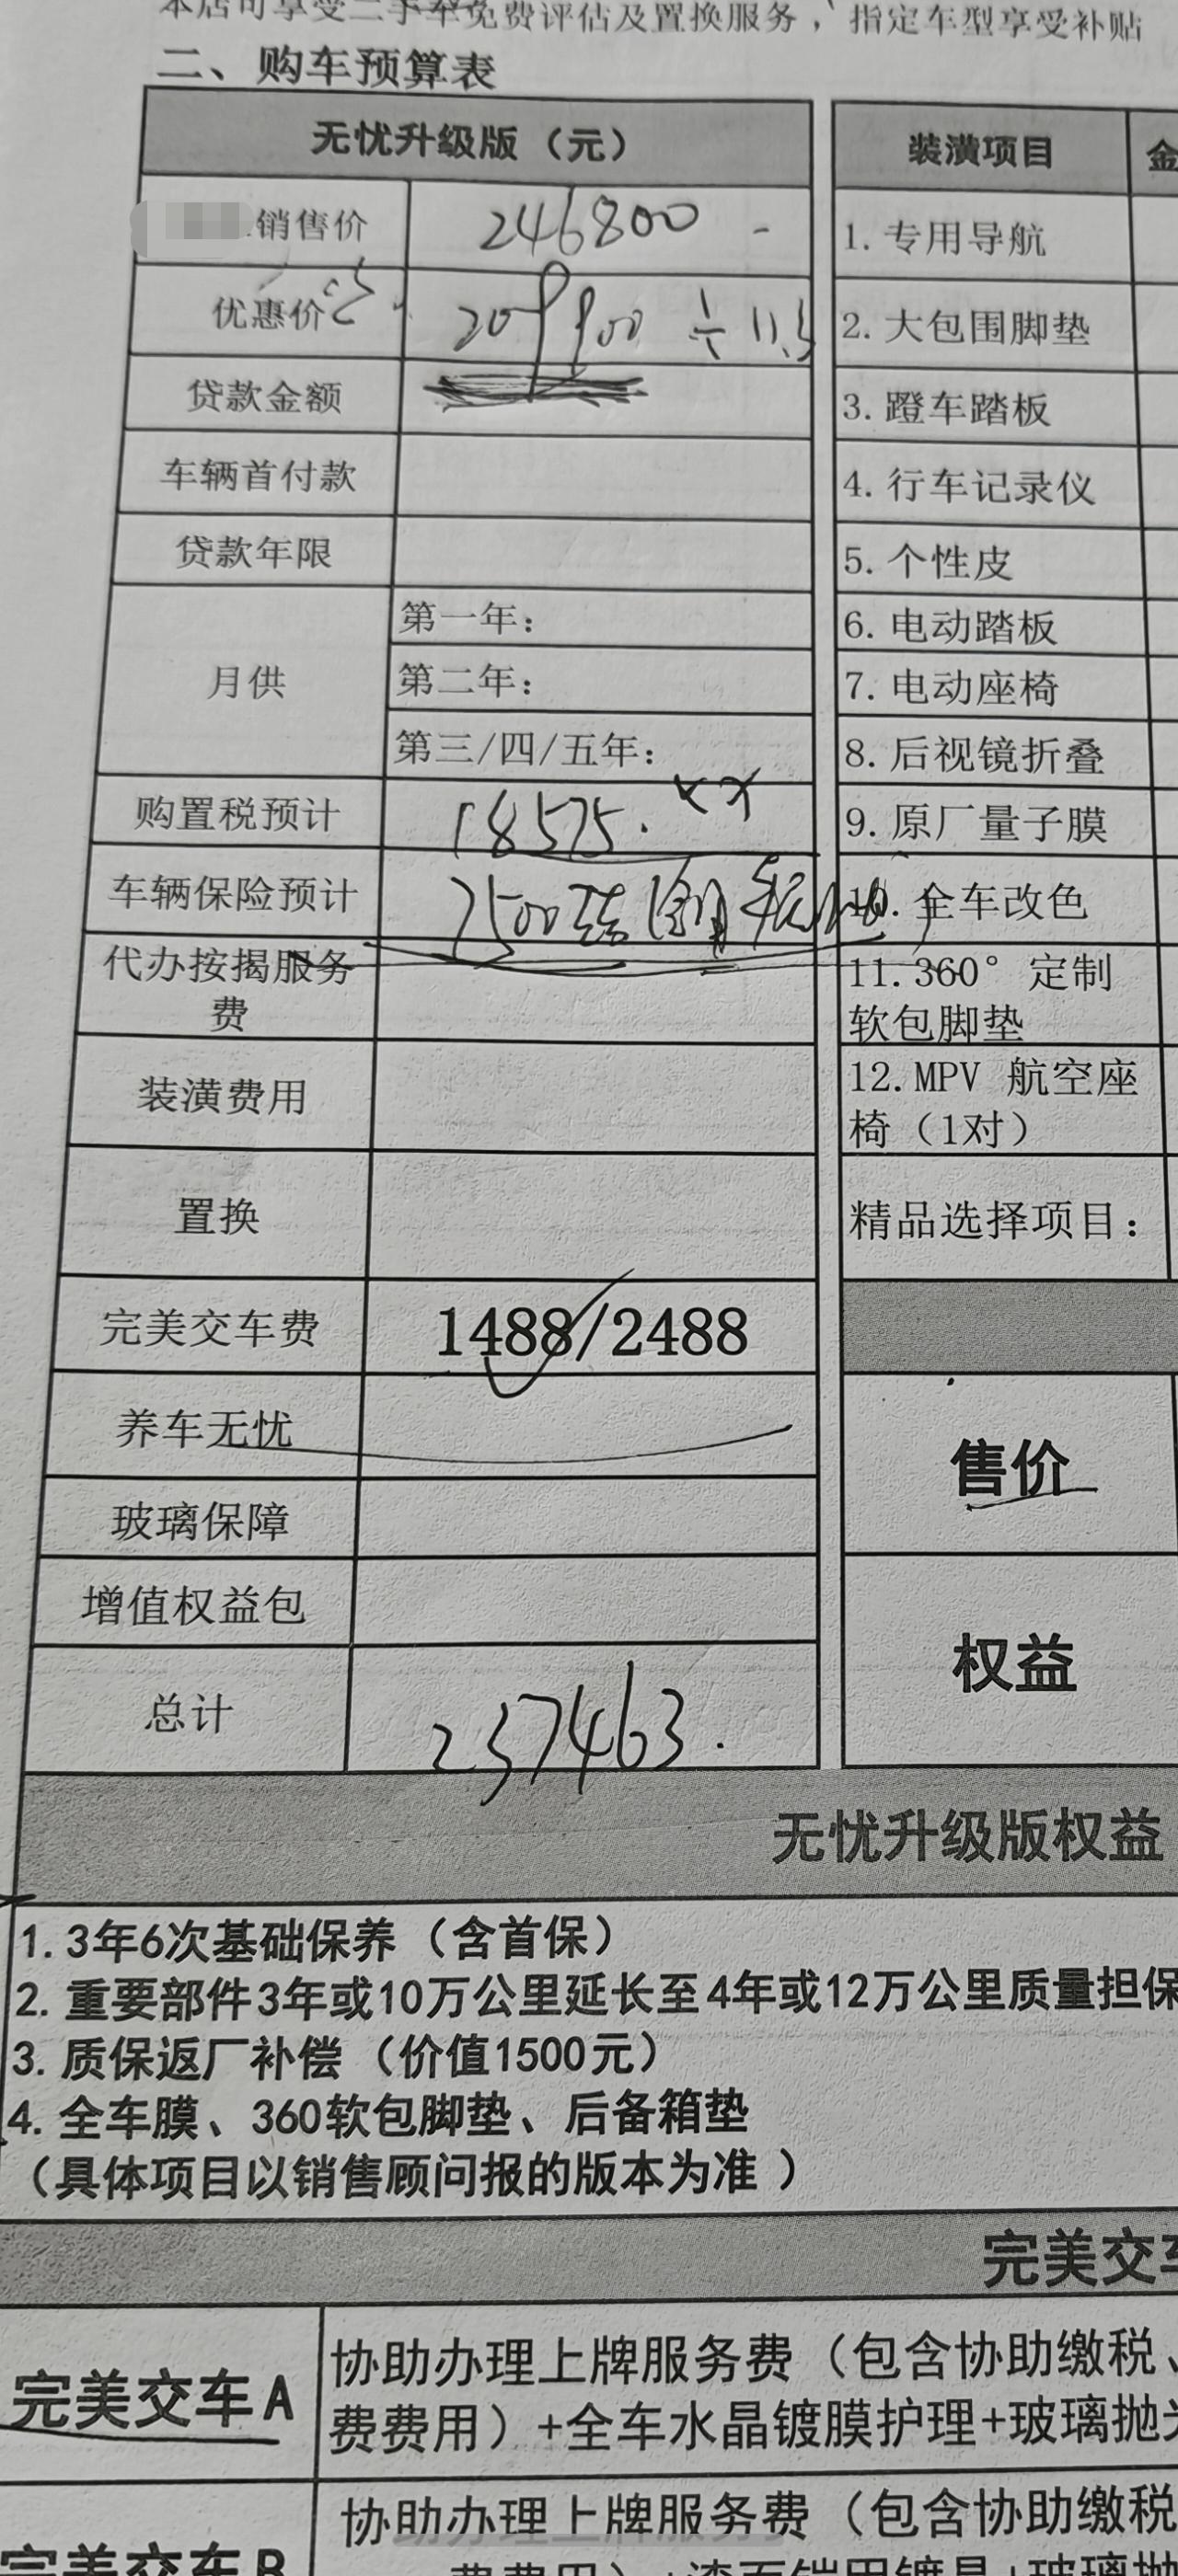 本店可享受二手车免费评估及置换服务，指定车型享受补贴
二、购车预算表
无忧升级版（元）
销售价 246800
优惠价 209900 ÷ 11.3
贷款金额
车辆首付款
贷款年限
月供
第一年：
第二年：
第三/四/五年：
购置税预计 18575.xx
车辆保险预计 7500
代办按揭服务
费
装潢费用
置换
完美交车费 1488/2488
养车无忧
玻璃保障
增值权益包
总计 237463.
装潢项目 金
1.专用导航
2.大包围脚垫
3.蹬车踏板
4.行车记录仪
5.个性皮
6.电动踏板
7.电动座椅
8.后视镜折叠
9.原厂量子膜
10.全车改色
11.360°定制
软包脚垫
12.MPV 航空座
椅（1对）
精品选择项目：
售价
权益
无忧升级版权益
1.3年6次基础保养（含首保）
2.重要部件3年或10万公里延长至4年或12万公里质量担保
3.质保返厂补偿（价值1500元）
4.全车膜、360软包脚垫、后备箱垫
（具体项目以销售顾问报的版本为准 ）
完美交车
完美交车A
协助办理上牌服务费（包含协助缴税、
费费用）+全车水晶镀膜护理+玻璃抛光
完美交车B
协助办理上牌服务费（包含协助缴税